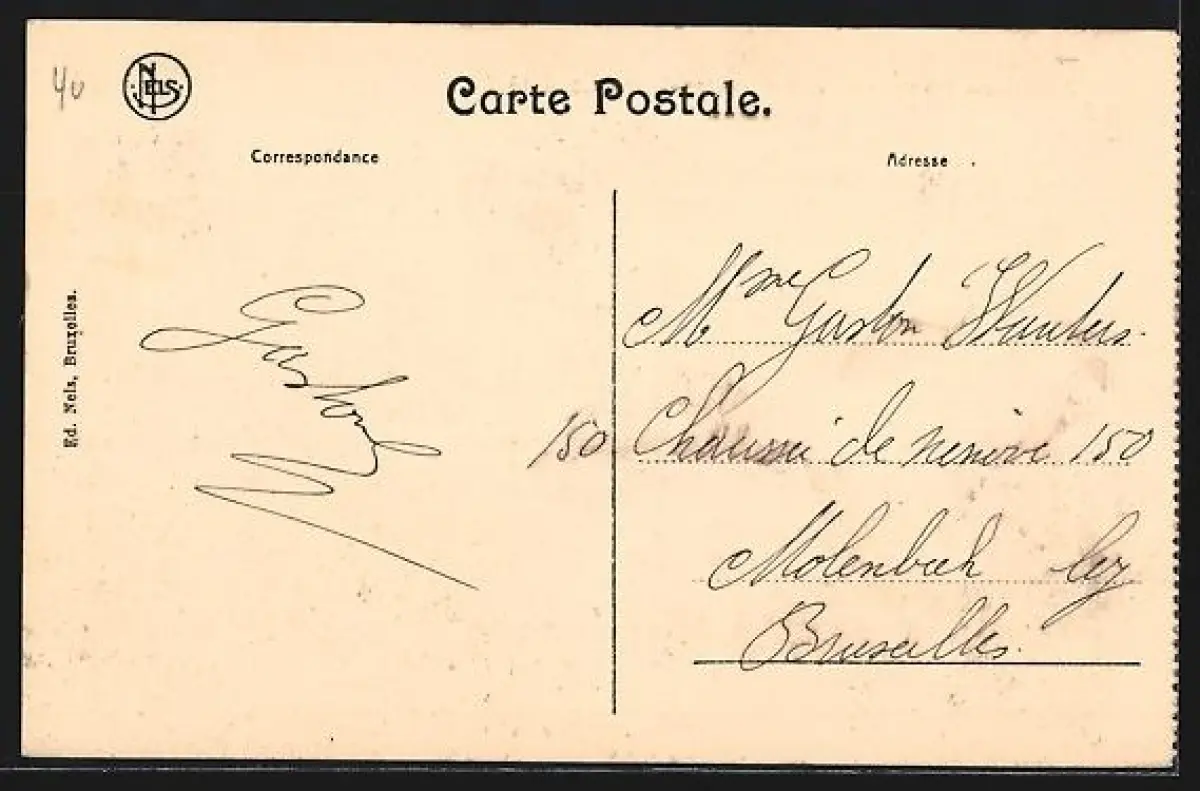 40
NELS
Carte Postale.
Correspondance
Adresse
Ed. Nels, Bruxelles.
Gaston
Mme Gaston Wauters.
150 Chaussée de Ninove 150
Molenbeek lez
Bruxelles.